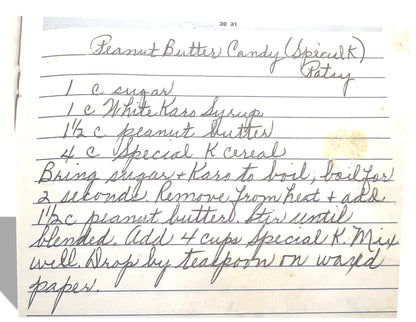 20 31
Peanut Butter Candy (Special K)
Patsy
1 c sugar
1 c White Karo Syrup
1½ c peanut butter
4 c Special K cereal
Bring sugar + Karo to boil, boil for
2 seconds. Remove from heat + add
1½ c peanut butter. Stir until
blended. Add 4 cups Special K. Mix
well. Drop by teaspoon on waxed
paper.